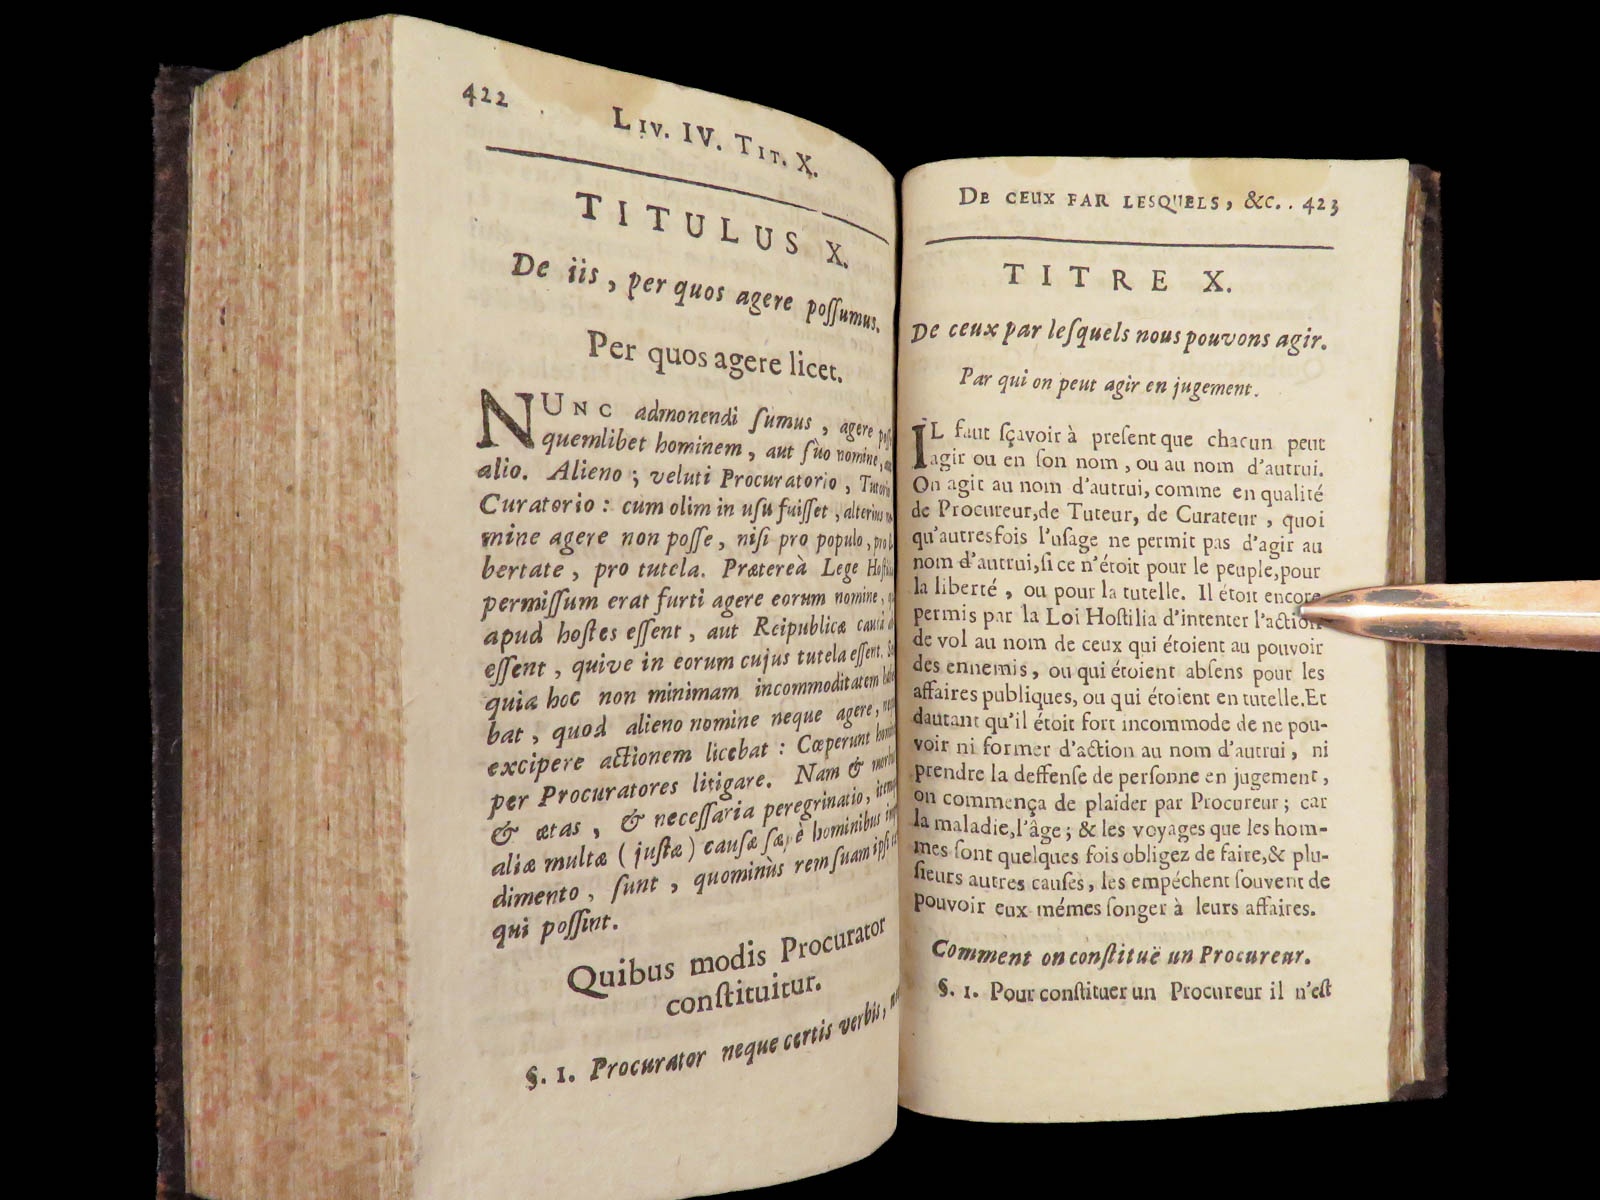 422
LIV. IV. TIT. X.
TITULUS X.
De iis, per quos agere poſſumus.
Per quos agere licet.
NUNC admonendi ſumus, agere
quemlibet hominem, aut ſùo nomine,
alio. Alieno; veluti Procuratorio,
Curatorio: cum olim in uſu fuiſſet, alterius
mine agere non poſſe, niſi pro populo,
bertate, pro tutela. Prætereà Lege
permiſſum erat furti agere eorum nomine,
apud hoſtes eſſent, aut Reipublicæ cauſâ
eſſent, quive in eorum cujus tutela eſſent.
quia hoc non minimam incommoditatem
bat, quod alieno nomine neque agere,
excipere actionem licebat: Cœperunt
per Procuratores litigare. Nam &
& ætas, & neceſſaria peregrinatio,
aliæ multæ (juſtæ) cauſæ ſæpè hominibus
dimento, ſunt, quominùs rem ſuam
qui poſſint.
Quibus modis Procurator
conſtituitur.
§. 1. Procurator neque certis verbis,
DE CEUX PAR LESQUELS, &c.. 423
TITRE X.
De ceux par leſquels nous pouvons agir.
Par qui on peut agir en jugement.
IL faut ſçavoir à preſent que chacun peut
agir ou en ſon nom, ou au nom d'autrui.
On agit au nom d'autrui, comme en qualité
de Procureur, de Tuteur, de Curateur, quoi
qu'autresfois l'uſage ne permit pas d'agir au
nom d'autrui, ſi ce n'étoit pour le peuple, pour
la liberté, ou pour la tutelle. Il étoit encore
permis par la Loi Hoſtilia d'intenter l'action
de vol au nom de ceux qui étoient au pouvoir
des ennemis, ou qui étoient abſens pour les
affaires publiques, ou qui étoient en tutelle. Et
dautant qu'il étoit fort incommode de ne pou-
voir ni former d'action au nom d'autrui, ni
prendre la deffenſe de perſonne en jugement,
on commença de plaider par Procureur; car
la maladie, l'âge; & les voyages que les hom-
mes ſont quelques fois obligez de faire, & plu-
ſieurs autres cauſes, les empéchent ſouvent de
pouvoir eux mémes ſonger à leurs affaires.
Comment on conſtituë un Procureur.
§. 1. Pour conſtituer un Procureur il n'eſt